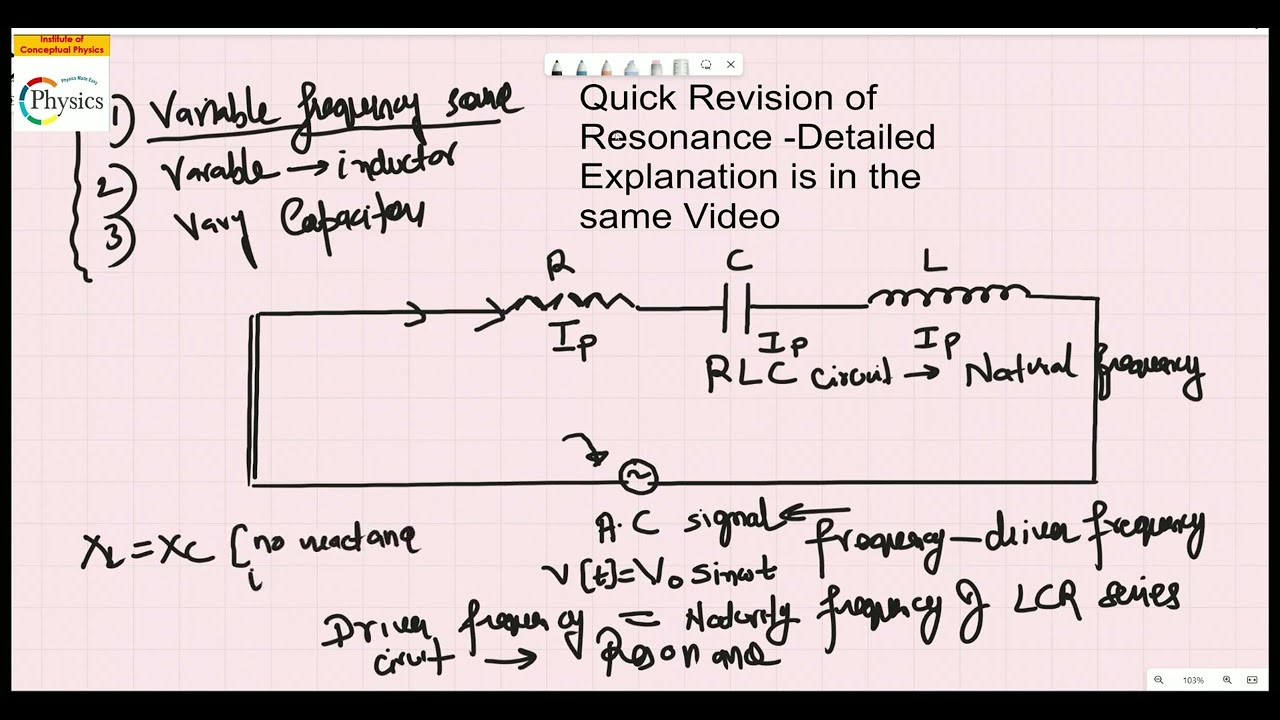 Institute of
Conceptual Physics
Physics Made Easy
Physics
1) Variable frequency source
2) Varable → inductor
3) Vary Capacitor
Quick Revision of
Resonance -Detailed
Explanation is in the
same Video
R
C
L
Ip
Ip
Ip
RLC circuit → Natural frequency
~
A.C signal ← frequency — driver frequency
V[t]=V₀ sinωt
XL = XC [no reactance
i
Driver frequency = Naturity frequency of LCR series
circuit → Resonance
103%